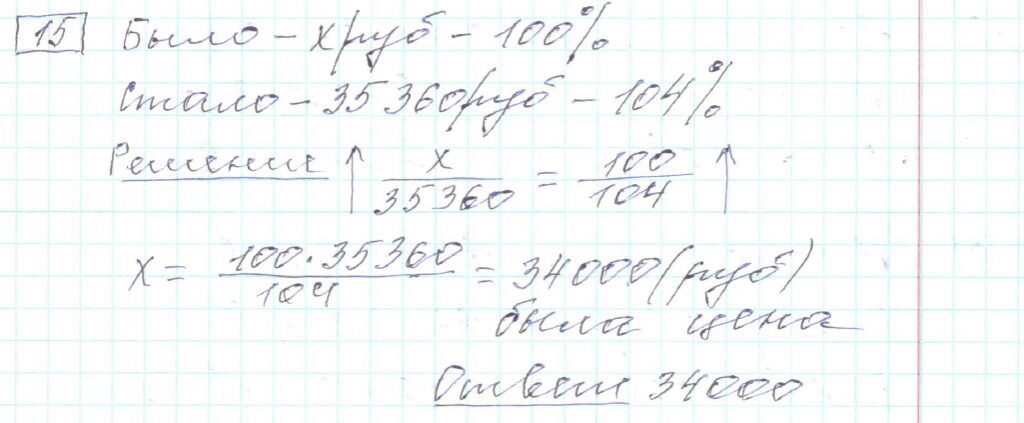 15 Было – х руб – 100%
Стало – 35360 руб – 104%
Решение ↑ х/35360 = 100/104 ↑
х = 100·35360/104 = 34000 (руб)
была цена
Ответ 34000